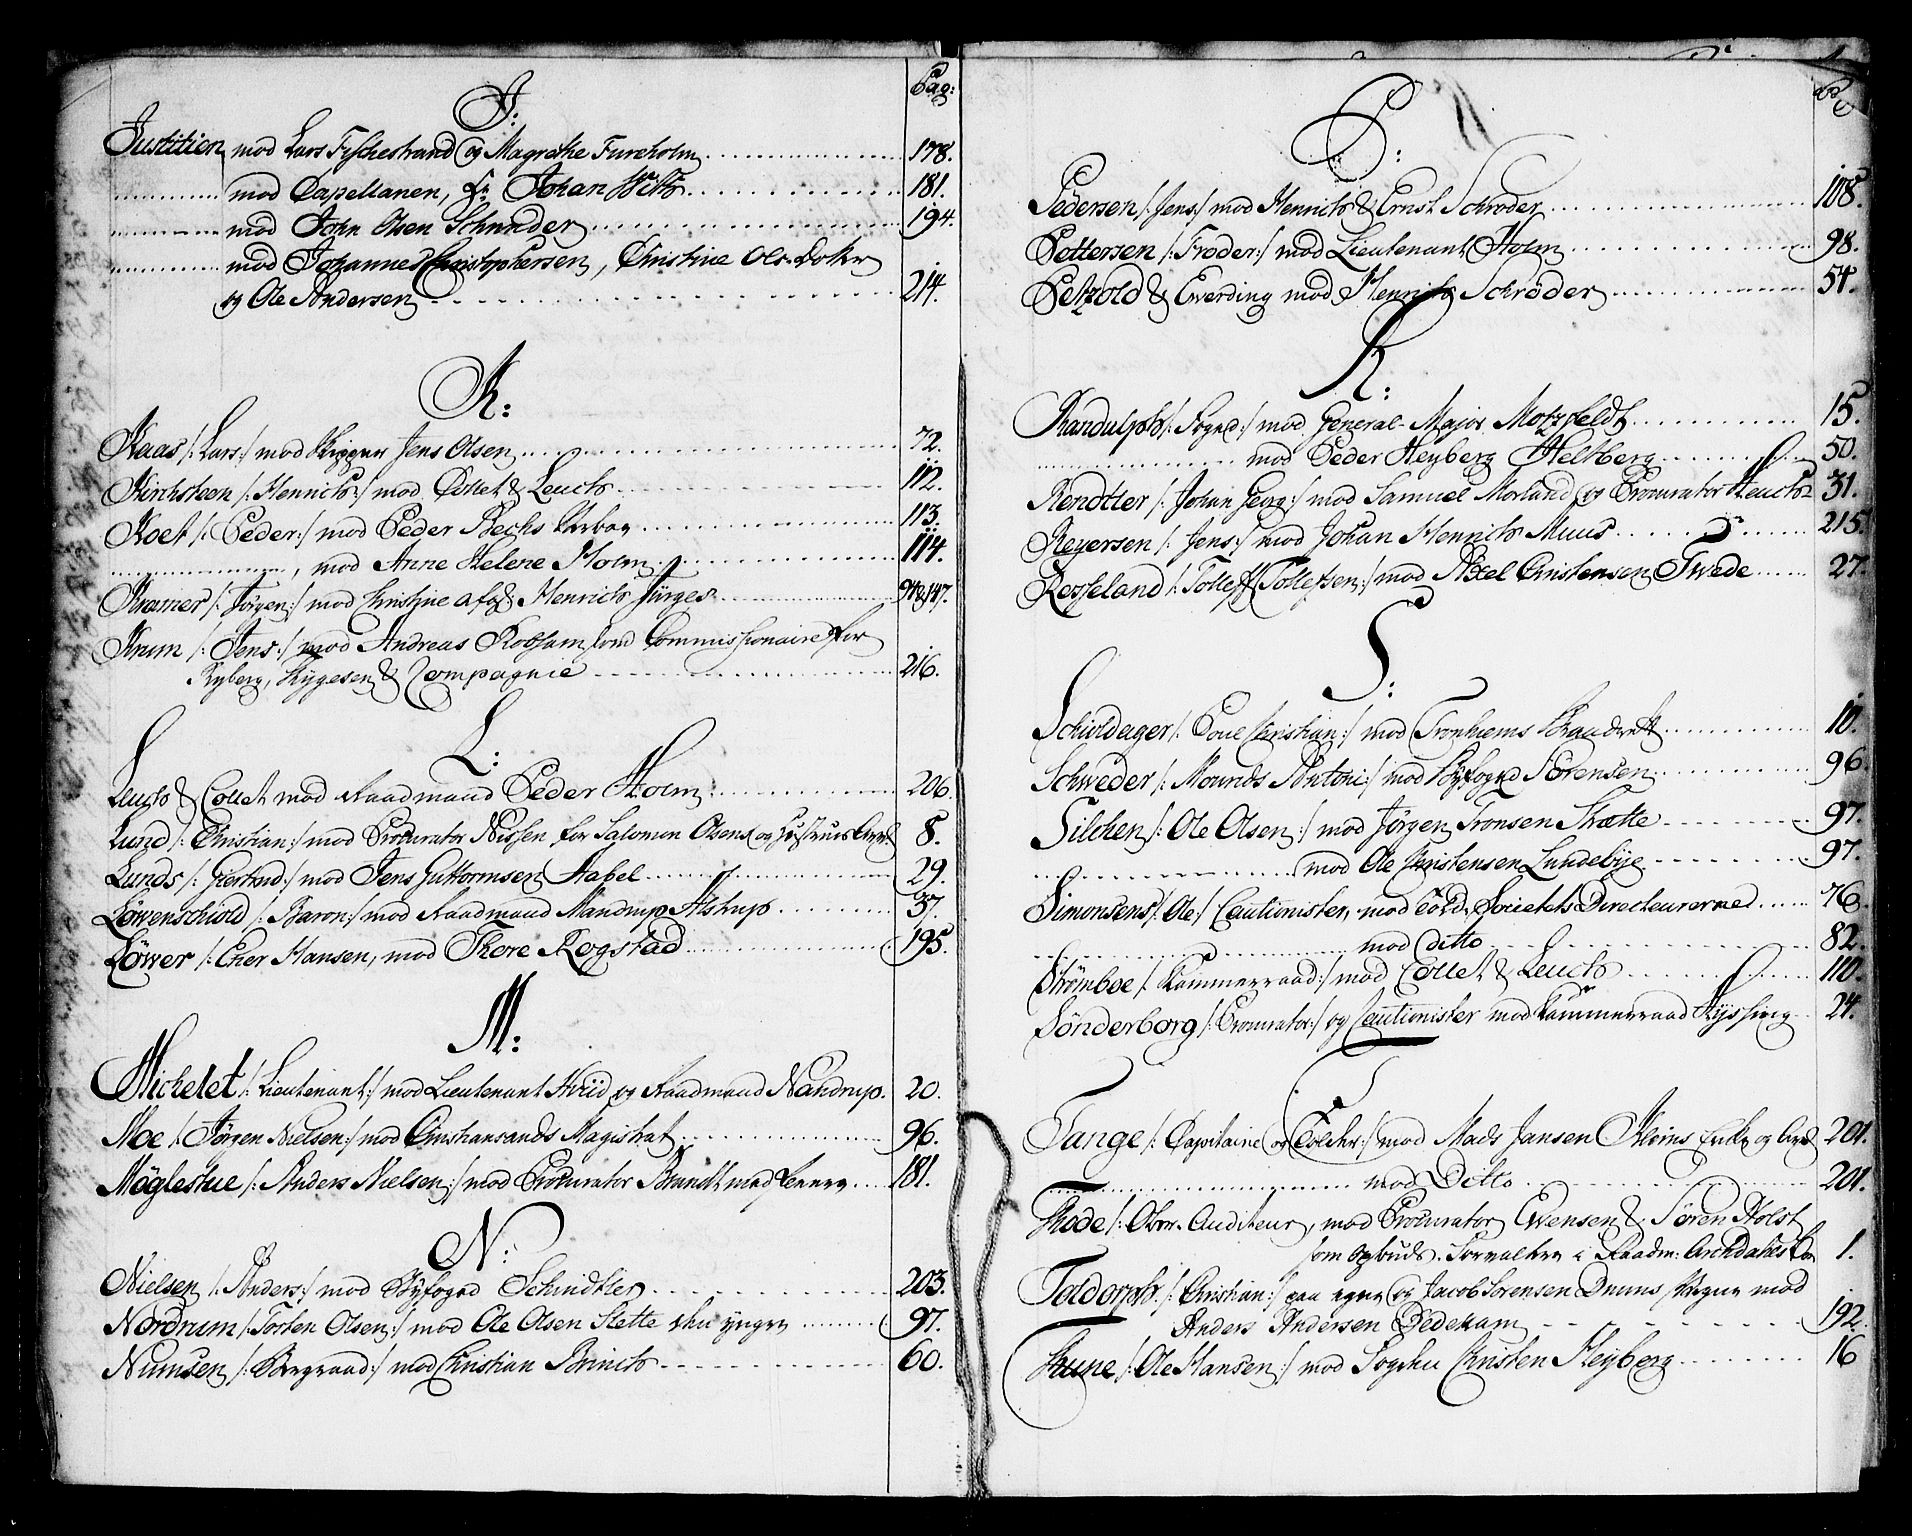 Pag:
J:
Justitien mod Lars Fischestrand og Magrethe Fureholm 178.
mod Capellanen, Hr Johan With 181.
mod John Olsen Schrøder 194.
mod Johannes Christophersen, Christine Ols-Dotter
og Ole Andersen 214.
K:
Kaas /: Lars :/ mod Skipper Jens Olsen 72.
Kirchsteen /: Henrich :/ mod Collet & Leuch 112.
Koet /: Peder :/ mod Peder Bechs 113.
, mod Anne Helene Holm 114.
Kramer /: Jørgen :/ mod Christine afg: Henrich Jürges 94 & 147.
Krum /: Jens :/ mod Andreas Robsam som Commissionaire for
Ryberg, Thygesen & Compagnie 216.
L:
Leuch & Collet mod Raadmand Peder Holm 206.
Lund /: Christian :/ mod Procurator Nissen for Salomon Olsens og Hustrues 8.
Lunds /: Giertrud :/ mod Jens Guttormsen Stabel 29.
Løvenschiold /: Baron :/ mod Raadmand Mandrup Alstrup 37.
Løwer /: Eher Hansen, mod Thore Rogstad 195.
M:
Michelet /: Lieutenant :/ mod Lieutenant Hviid og Raadmand Nandrup. 20.
Moe /: Jørgen Nielsen :/ mod Christiansands Magistrat 96.
Møglestue /: Anders Nielsen :/ mod Procurator Brandt med fleere 181.
N:
Nielsen /: Anders :/ mod Byfoged Schindtler 203.
Nordrum /: Torsten Olsen :/ mod Ole Olsen Slette den yngre 97.
Numsen /: Bergraad :/ mod Christian Brinch 60.
P:
Pedersen /: Jens :/ mod Henrich & Ernst Schrøder 108.
Pettersen /: Frøder :/ mod Lieutenant Holm 98.
Petzold & Ewerding mod Henrich Schrøder 54.
R:
Randulph /: Foged :/ mod General-Major Motzfeldt 15.
mod Peder Heyberg Heltberg 50.
Rendtler /: Johan Georg :/ mod Samuel Morland og Procurator Heuch 31.
Reyersen /: Jens :/ mod Johan Henrich Muus 215.
Rosseland /: Tollef Tollefsen :/ mod Axel Christensen Twede 27.
S:
Schioldager /: Poul Christian :/ mod Tronhiems 10.
Schweder /: Mounds Antoni :/ mod Byfoged Sørensen 96.
Silchen /: Ole Olsen :/ mod Jørgen Tronsen Slette 97.
mod Ole Christensen Lundebye 97.
Simonsens /: Ole :/ Cautionister, mod Told-Societets Directeurerne 76.
mod Ditto 82.
Strømboe /: Kammerraad :/ mod Collet & Leuch 110.
Sønderborg /: Procurator :/ og Cautionister mod Kammerraad Hyssing 24.
T
Tange /: Capitaine og Tolder :/ mod Mads Jansen Kleins Enke og 201.
mod Ditto 201.
Thode /: Over-Auditeur, mod Procurator Evensen & Søren Holst
som Opbuds-Forvaltere i Raadm: Archdalis Boe 1.
Toldorph /: Christian :/ paa egne og Jacob Sørensen Drums Vegne mod
Anders Andersen Dedekam 192.
Thune /: Ole Hansen :/ mod Sogskr Christen Heyberg 16